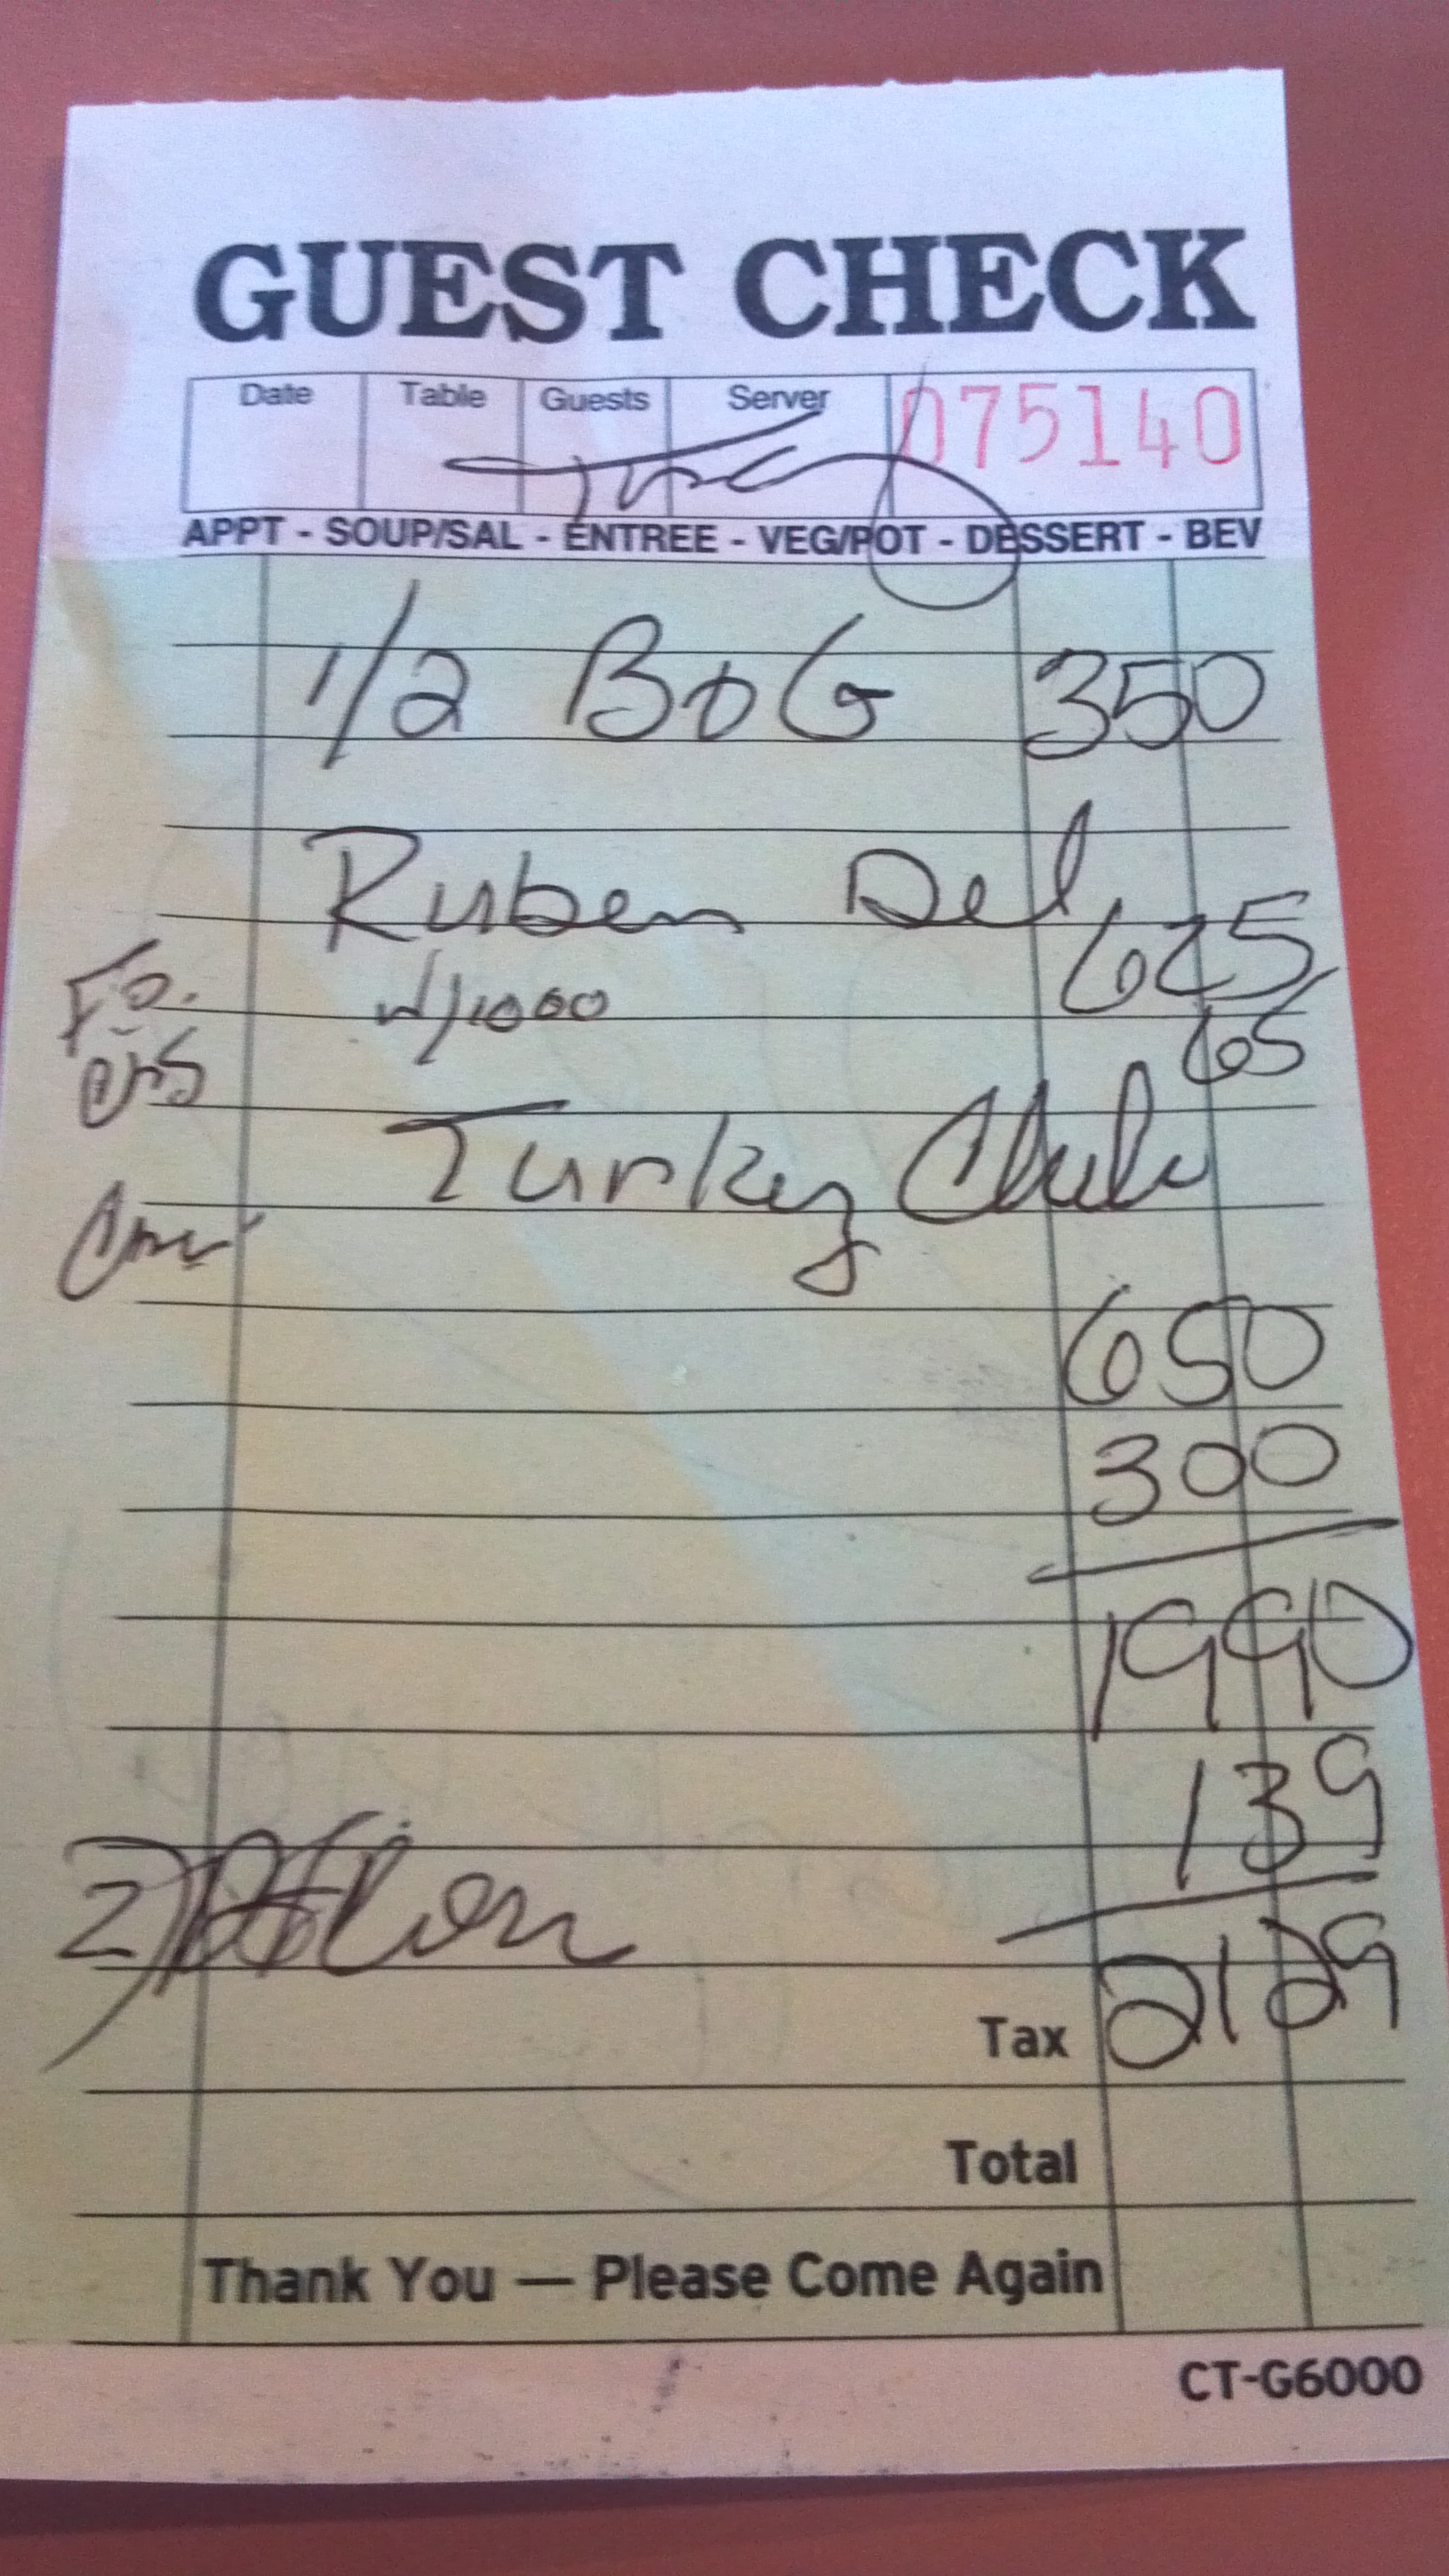 GUEST CHECK
Date Table Guests Server 075140
APPT - SOUP/SAL - ENTREE - VEG/POT - DESSERT - BEV
1/2 B+G 350
Ruben Del
625
w/1000
65
Turkey Club
650
300
1990
139
2129
Tax
Total
Thank You — Please Come Again
CT-G6000